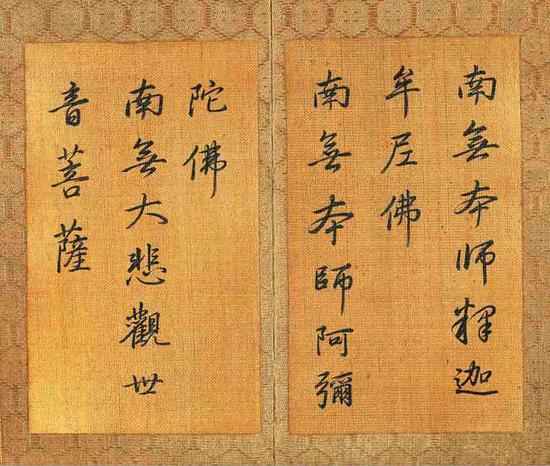 南無本師釋迦
牟尼佛
南無本師阿彌
陀佛
南無大悲觀世
音菩薩